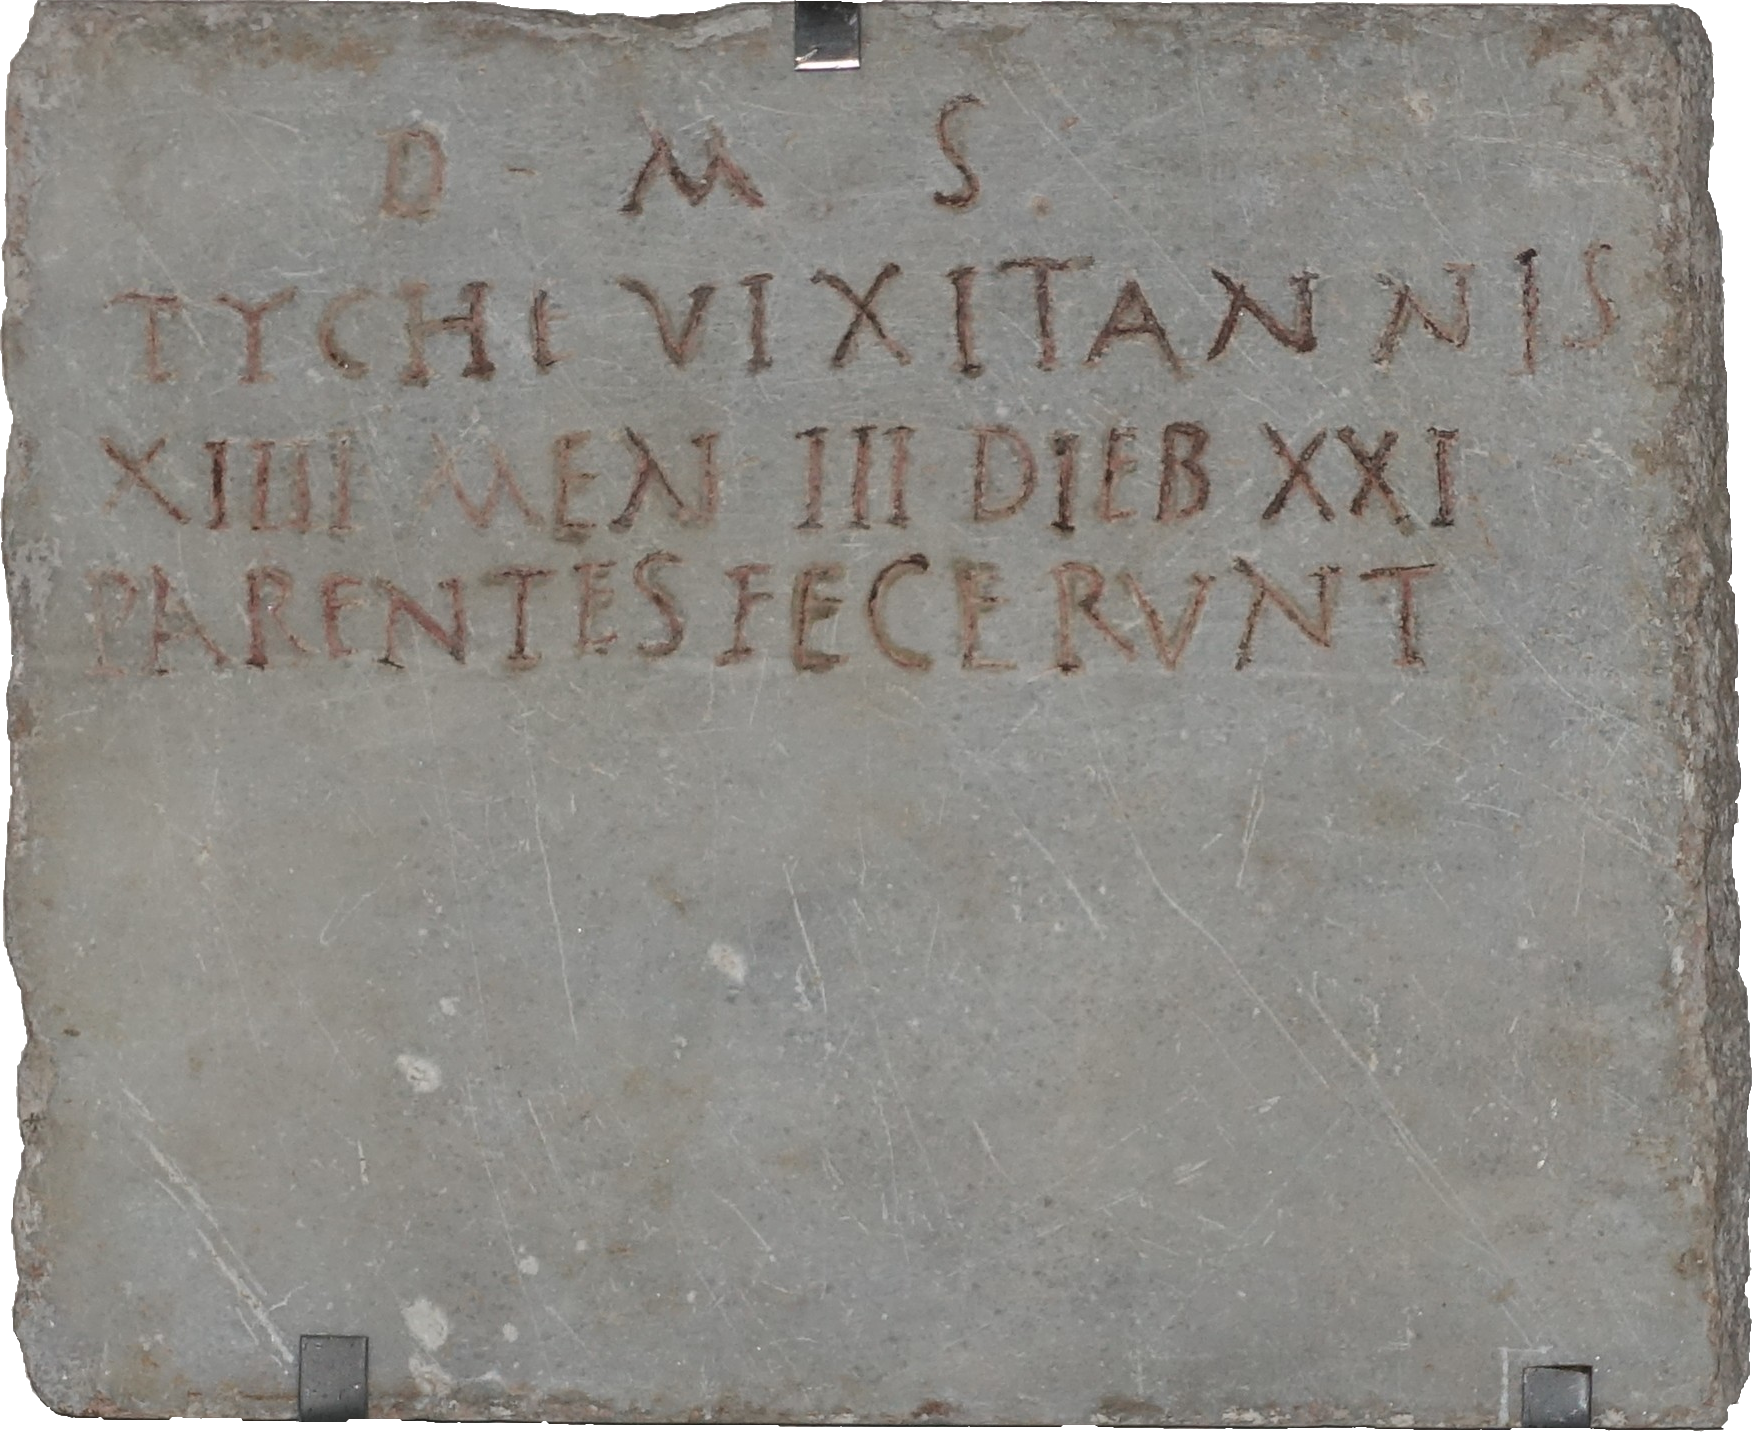 D · M · S ·
TYCHE VIXIT ANNIS
XIIII MEN III DIEB XXI
PARENTES FECERVNT